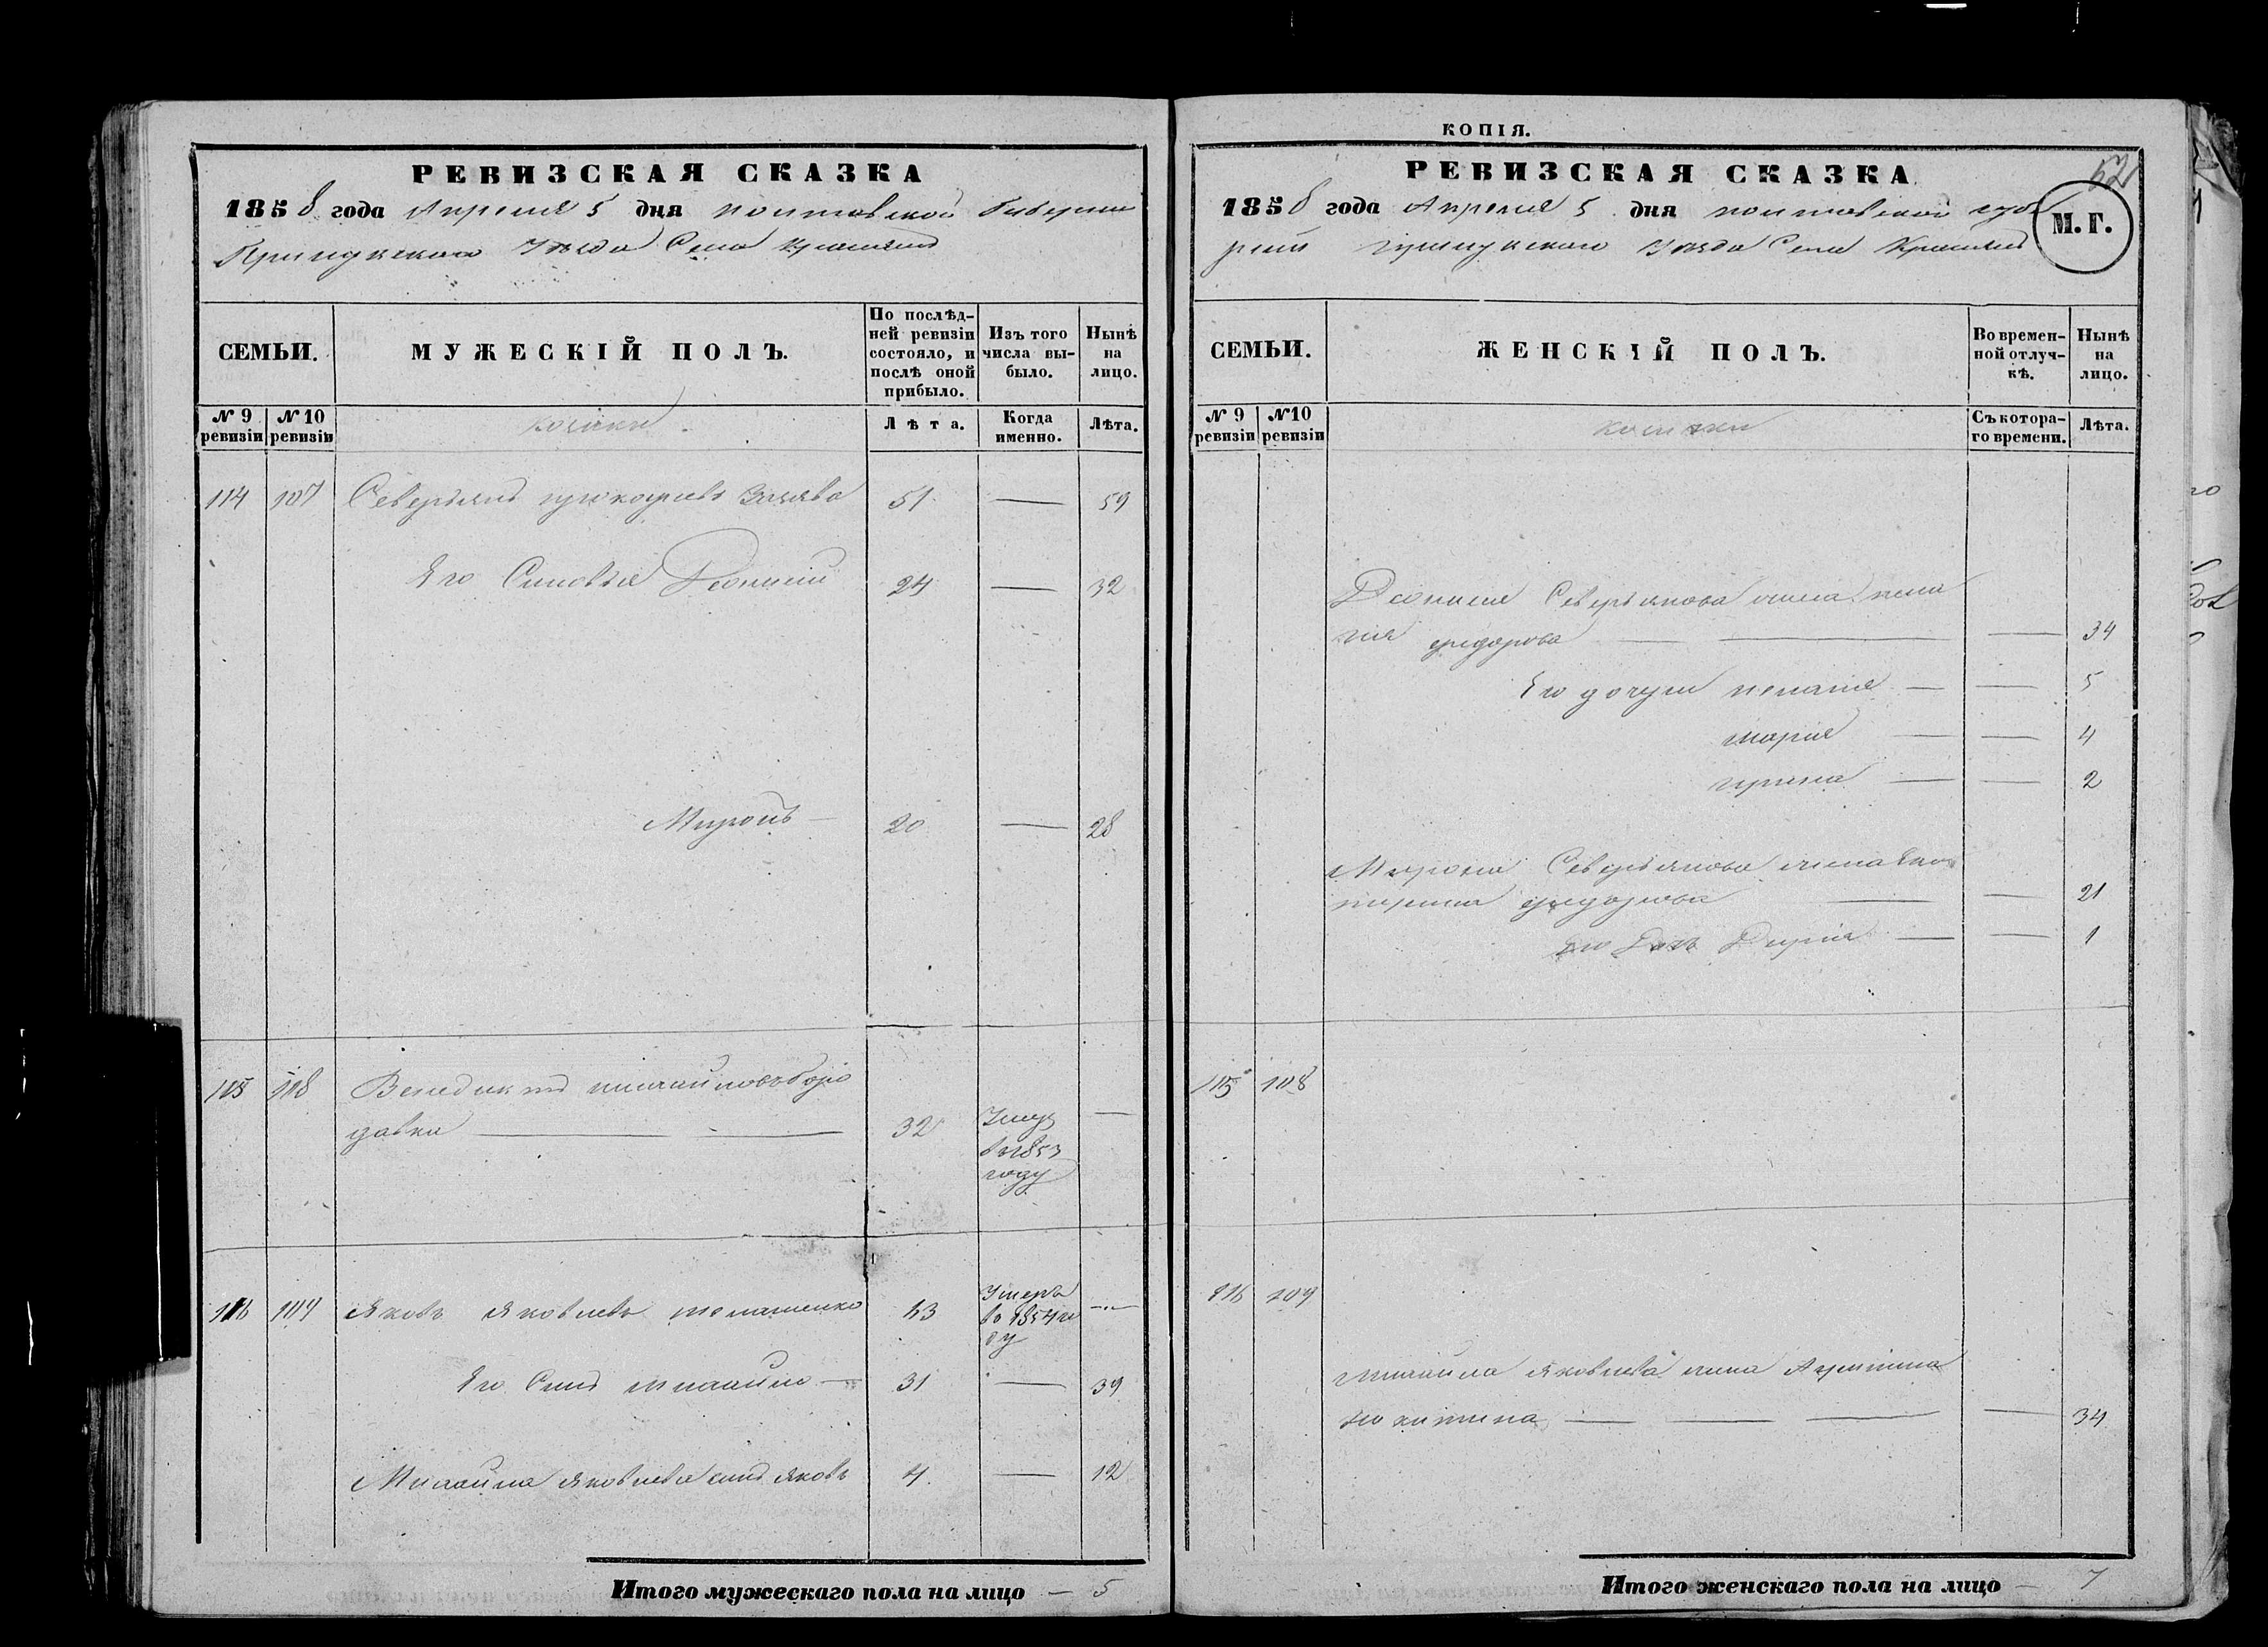 РЕВИЗСКАЯ СКАЗКА
1858 года Апреля 5 дня Полтавской Губернии
Прилукского Уезда Села
СЕМЬИ.
МУЖЕСКІЙ ПОЛЪ.
По послѣд-
ней ревизіи
состояло, и
послѣ оной
прибыло.
Изъ того
числа вы-
было.
Нынѣ
на
лицо.
№ 9
ревизіи
№ 10
ревизіи
козаки
Лѣта.
Когда
именно.
Лѣта.
114 107 Северьянъ прокофьевъ 51 — 59
Его Сыновья Деонисій 24 — 32
Миронъ — 20 — 28
115 108 Венедиктъ михайловъ боро
давка — 32 Умеръ —
въ 1853
году
116 109 Яковъ яковлевъ 63 Умеръ —
въ 1854 го
ду
Его Сынъ михайло — 31 — 39
Михайла яковлева сынъ яковъ 4 — 12
Итого мужескаго пола на лицо — 5
КОПІЯ.
РЕВИЗСКАЯ СКАЗКА
62
1858 года Апреля 5 дня полтавской губе
рніи прилукского Уезда Села
М. Г.
СЕМЬИ.
ЖЕНСКІЙ ПОЛЪ.
Во времен-
ной отлуч-
кѣ.
Нынѣ
на
лицо.
№ 9
ревизіи
№ 10
ревизіи
козачки
Съ котора-
го времени.
Лѣта.
Деонисія Северьянова жена пела
гия федорова — — — 34
Его дочери пелагия — — 5
мария — — 4
ирина — — 2
Мирона Северьянова жена Ека
терина федорова — — 21
Его Дочь Дария — — 1
115 108
116 109
михайла яковлева жена
никитина — — — — 34
Итого женскаго пола на лицо — 7